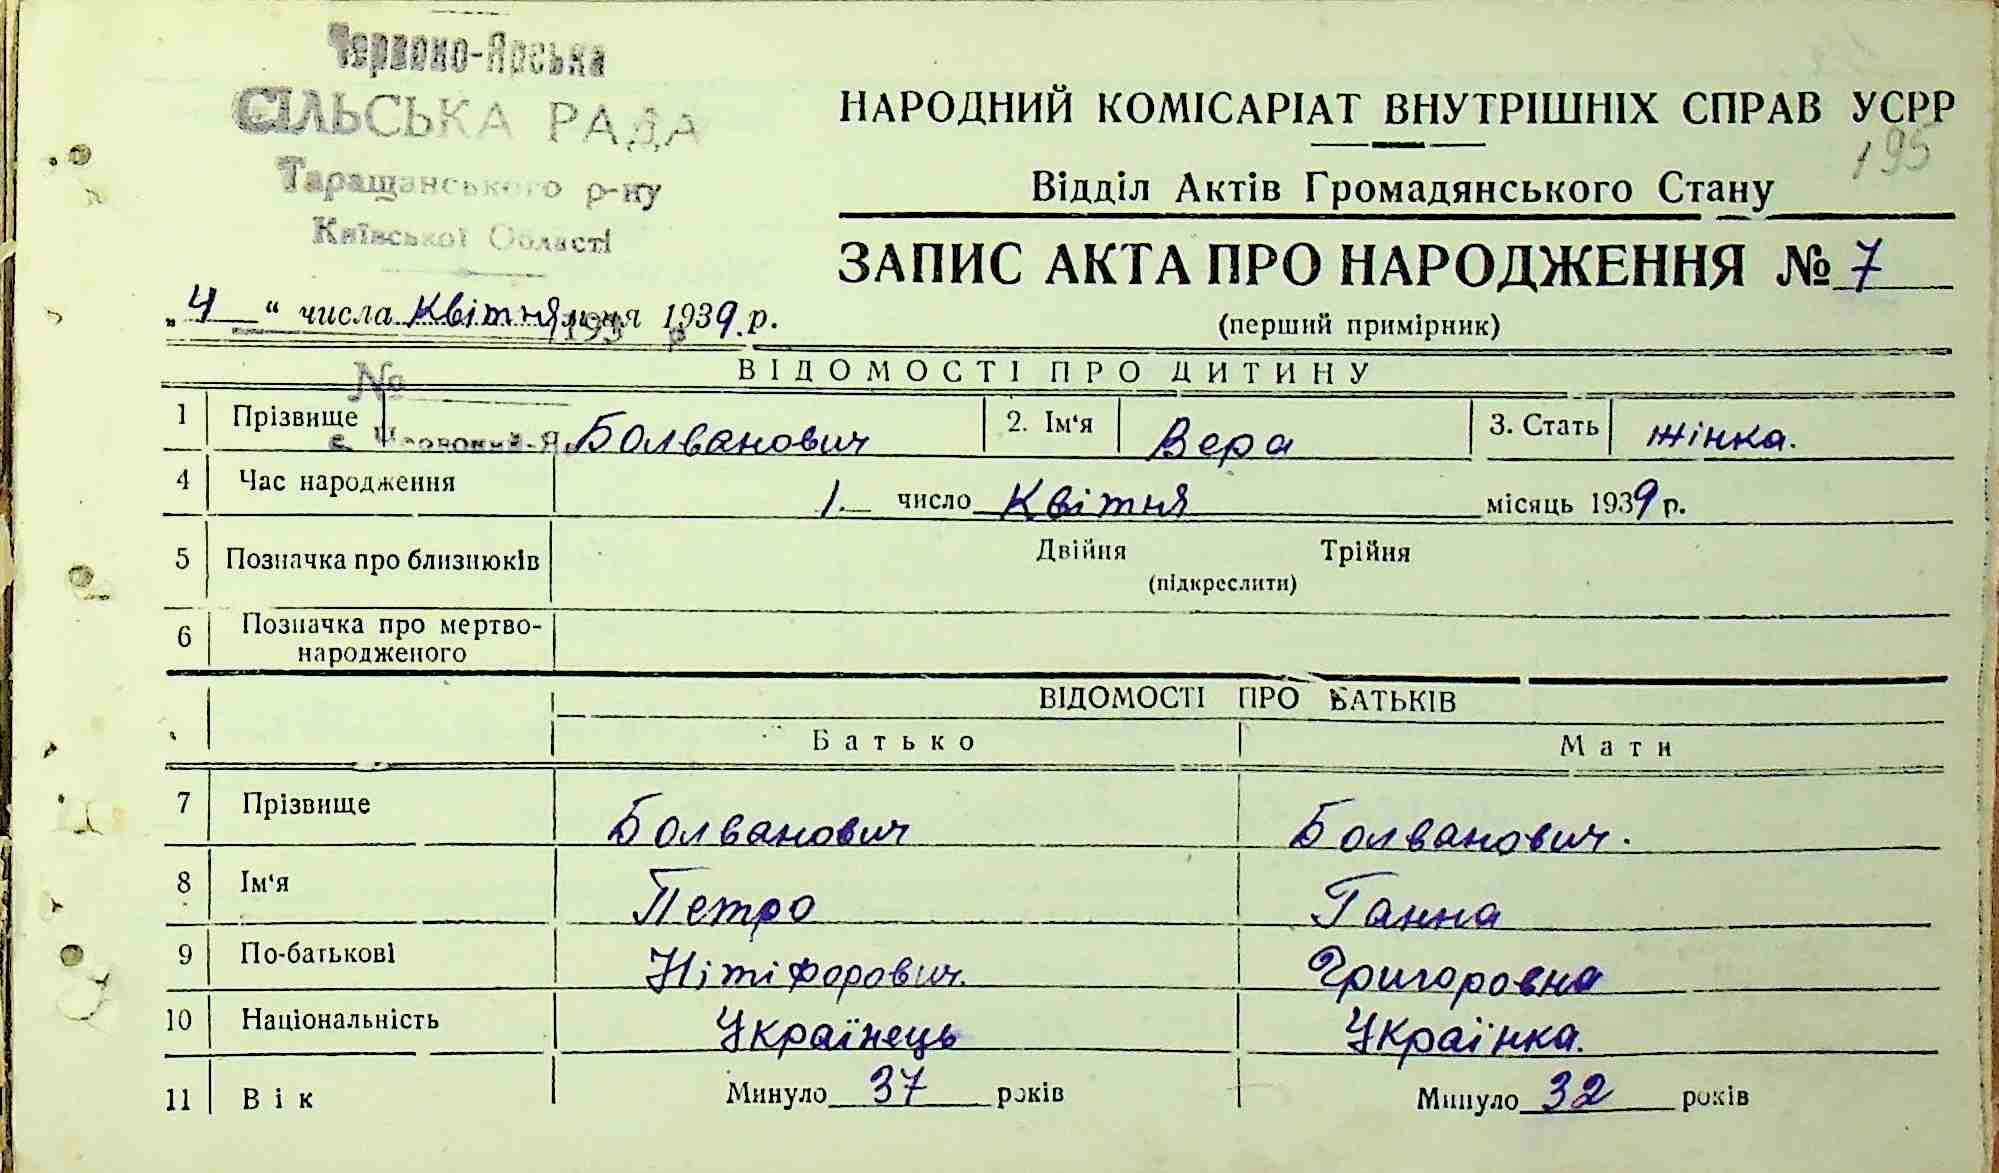 Червоно-Ярська
СІЛЬСЬКА РАДА
Таращанського р-ну
Київської Області
НАРОДНИЙ КОМІСАРІАТ ВНУТРІШНІХ СПРАВ УСРР
195
Відділ Актів Громадянського Стану
ЗАПИС АКТА ПРО НАРОДЖЕННЯ № 7
(перший примірник)
„4“ числа Квітня м-ця 1939 р.
193 р
ВІДОМОСТІ ПРО ДИТИНУ
№
1 Прізвище Болванович 2. Ім‘я Вера 3. Стать жінка.
с. Червоний-Яр
4 Час народження 1. число Квітня місяць 1939 р.
5 Позначка про близнюків Двійня Трійня
(підкреслити)
6 Позначка про мертво-
народженого
ВІДОМОСТІ ПРО БАТЬКІВ
Батько Мати
7 Прізвище Болванович Болванович.
8 Ім‘я Петро Ганна
9 По-батькові Нітіфорович. Григоровна
10 Національність Українець Українка.
11 Вік Минуло 37 років Минуло 32 років